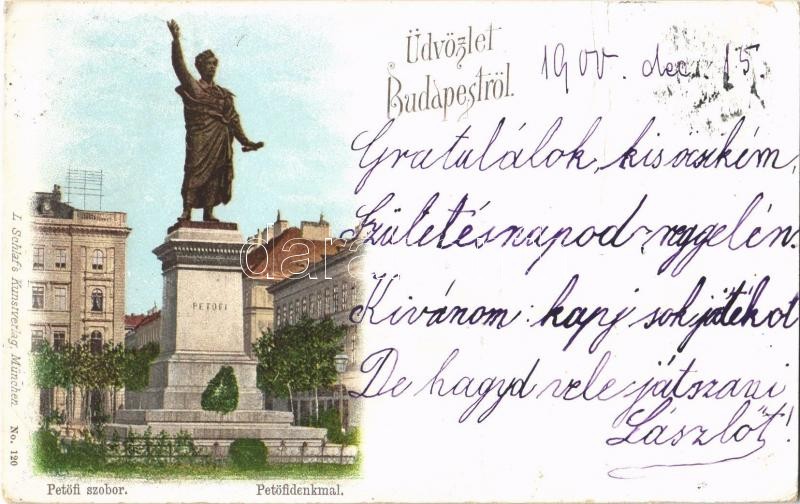 Üdvözlet
Budapestről.
1900. dec. 15
Gratulálok, kisöcském,
Születésnapod reggelén.
Kivánom: kapj sok játékot
De hagyd vele játszani
Lászlót!
PETŐFI
L. Schäfs Kunstverlag, München. No. 120
Petőfi szobor.
Petőfidenkmal.